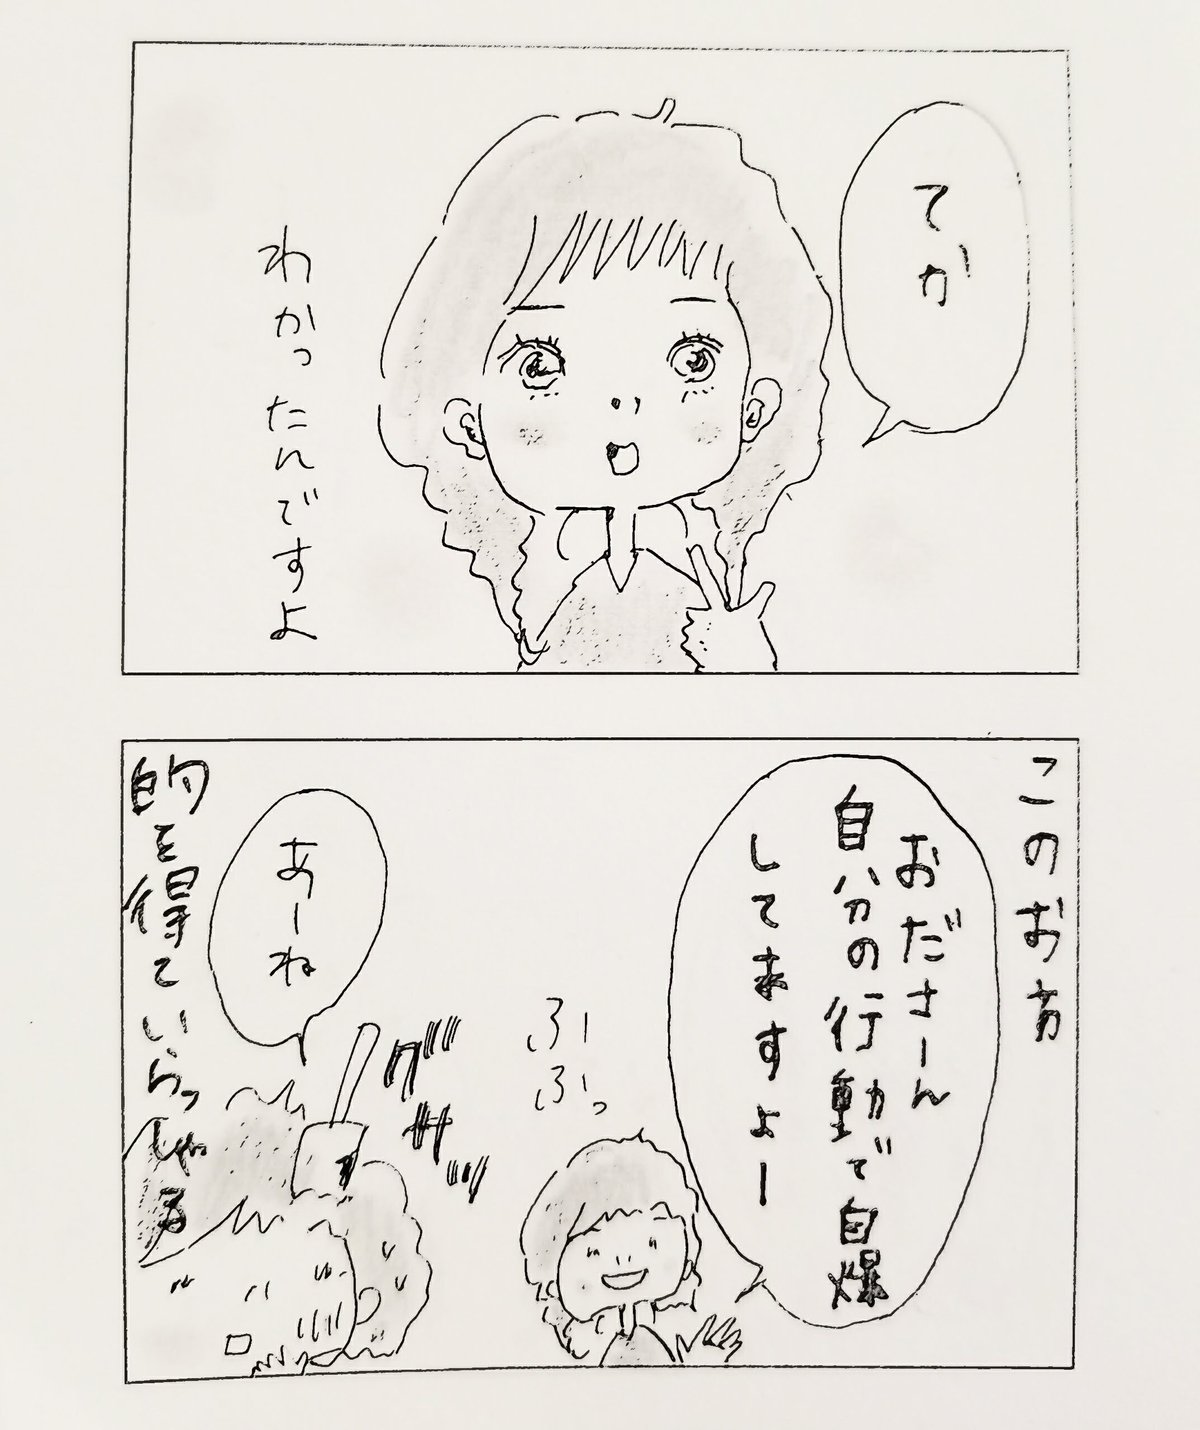 てか
わかったんですよ
このお方
おださーん
自分の行動で自爆
してますよー
ふふっ
グサッ
あーね
的を得ていらっしゃる